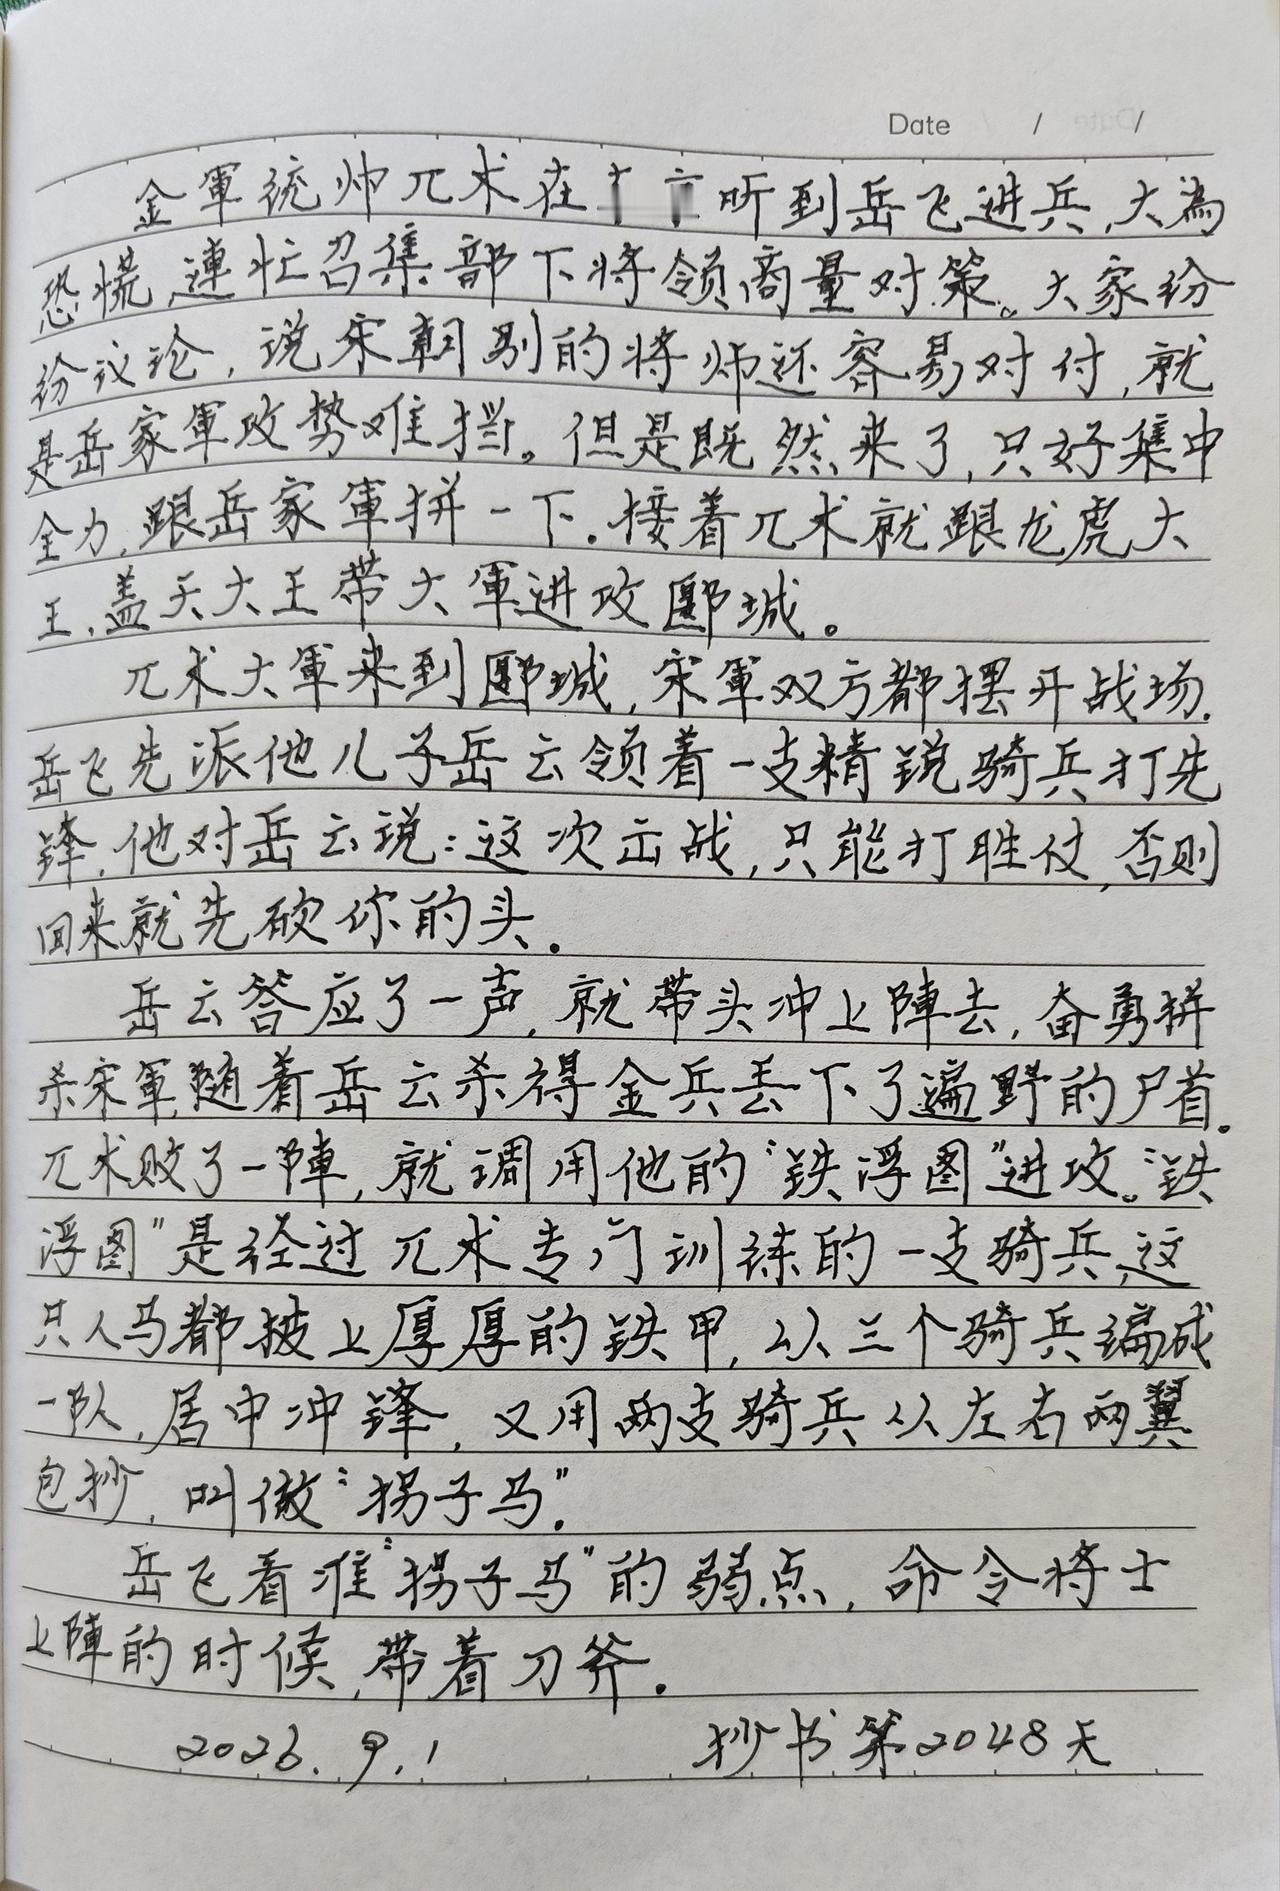 Date / /
金軍统帅兀术在 听到岳飞进兵,大為
恐慌,連忙召集部下将领商量对策。大家纷
纷议论,说宋朝别的将帅还容易对付,就
是岳家軍攻势难挡。但是既然来了,只好集中
全力,跟岳家軍拼一下.接着兀术就跟龙虎大
王,盖天大王带大軍进攻郾城。
兀术大軍来到郾城,宋軍双方都摆开战场.
岳飞先派他儿子岳云领着一支精锐骑兵打先
锋,他对岳云说:这次出战,只能打胜仗,否则
回来就先砍你的头.
岳云答应了一声,就带头冲上陣去,奋勇拼
杀宋軍,随着岳云杀得金兵丢下了遍野的尸首.
兀术败了一陣,就调用他的“铁浮图”进攻。“铁
浮图”是经过兀术专门训练的一支骑兵,这
只人马都披上厚厚的铁甲,以三个骑兵编成
一队,居中冲锋,又用两支骑兵从左右两翼
包抄,叫做“拐子马”.
岳飞看准“拐子马”的弱点,命令将士
上陣的时候,带着刀斧.
2026.9.1 抄书第2048天